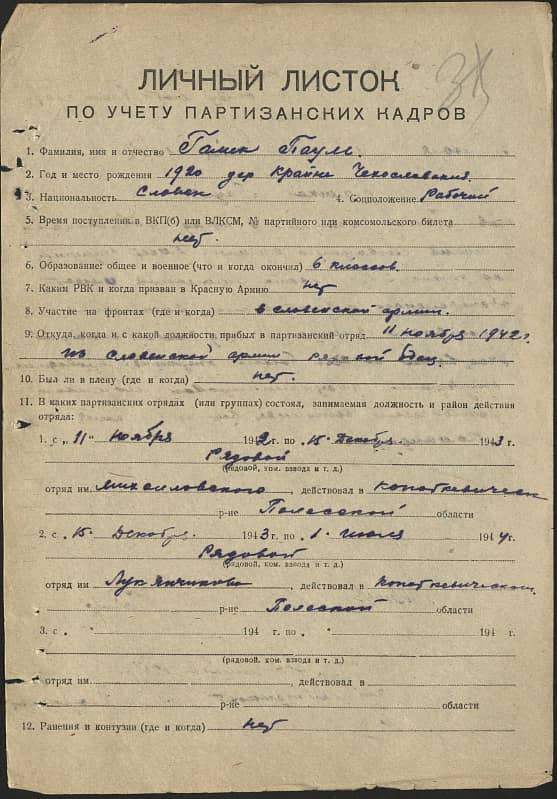 ЛИЧНЫЙ ЛИСТОК
ПО УЧЕТУ ПАРТИЗАНСКИХ КАДРОВ
1. Фамилия, имя и отчество Гамек Паул.
2. Год и место рождения 1920 дер Крайне Чехославакия.
3. Национальность Словак 4. Соцположение Рабочий
5. Время поступления в ВКП(б) или ВЛКСМ, № партийного или комсомольского билета
нет.
6. Образование: общее и военное (что и когда окончил) 6 классов.
7. Каким РВК и когда призван в Красную Армию нет
8. Участие на фронтах (где и когда) в словенской армии.
9. Откуда, когда и с какой должности прибыл в партизанский отряд 11 ноября 1942г.
из словенской армии рядовой боец.
10. Был ли в плену (где и когда) нет.
11. В каких партизанских отрядах (или группах) состоял, занимаемая должность и район действия
отряда:
1. с „11" ноября 1942 г. по 15. Декабря. 1943 г.
Рядовой
(рядовой, ком. взвода и т. д.)
отряд им. Михаиловского, действовал в Копаткевическ
р-не Полесской области
2. с 15. Декабря. 1943 г. по 1. июля 1944 г.
Рядовой
(рядовой, ком. взвода и т. д.)
отряд им Лукянчикова, действовал в Копаткевическом.
р-не Полесской области
3. с 194 г. по 194 г.
(рядовой, ком. взвода и т. д.)
отряд им. , действовал в
р-не области
12. Ранения и контузии (где и когда) нет